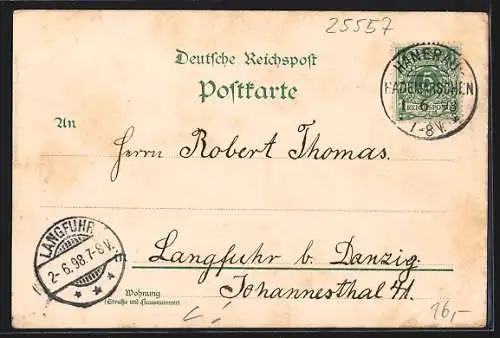 25557
Deutsche Reichspost
Postkarte
HANERAU
HADEMARSCHEN
1 6 98
7-8V.
5
REICHSPOST
An
Herrn Robert Thomas.
LANGFUHR
2-6.98.7-8V.
Langfuhr b. Danzig.
Wohnung
(Straße und Hausnummer)
Johannesthal
16,-